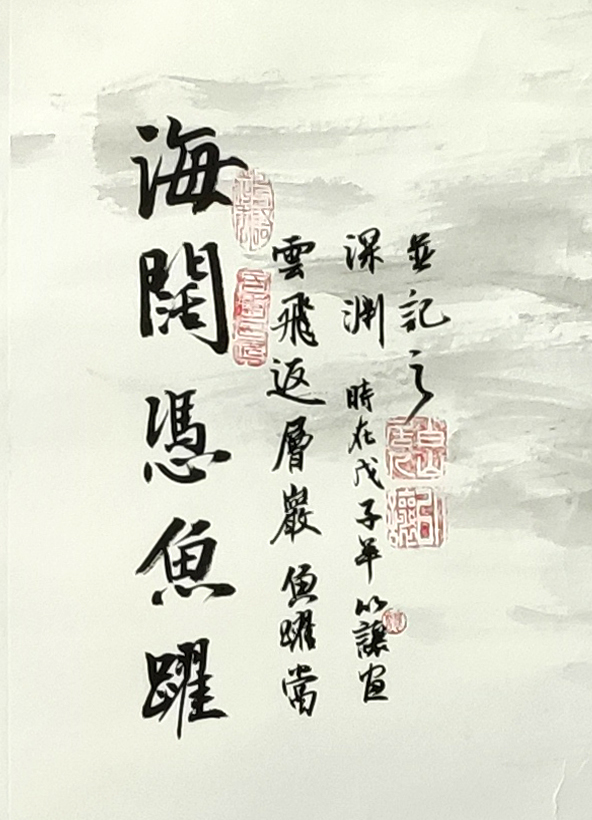 海闊憑魚躍
雲飛返層巖魚躍當
深渊時在戊子年以讓画
並記之